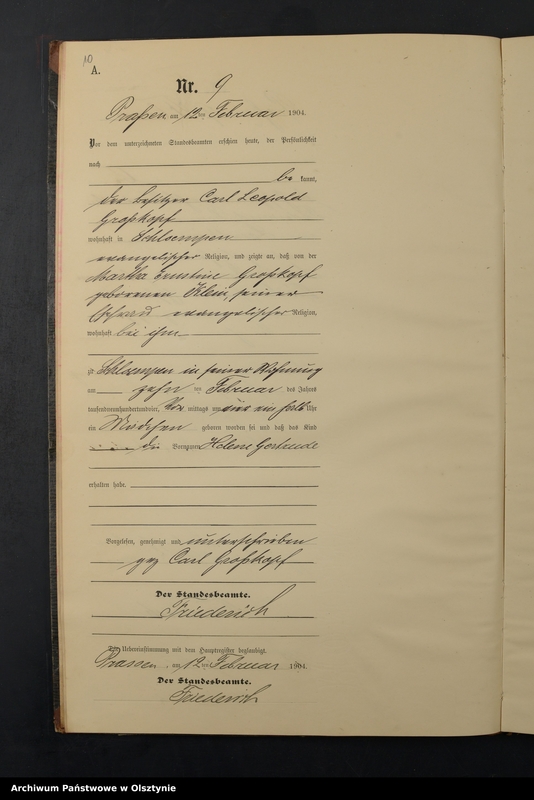 10
A.
Nr. 9
Praßen am 12 ten Februar 1904.
Vor dem unterzeichneten Standesbeamten erschien heute, der Persönlichkeit
nach
be kannt,
der Besitzer Carl Leopold
Großkopf
wohnhaft in Schloempen
evangelischer Religion, und zeigte an, daß von der
Martha Ernstine Großkopf
geborenen Klein, seiner
Ehefrau evangelischer Religion,
wohnhaft bei ihm
zu Schloempen in seiner Wohnung
am zehn ten Februar des Jahres
tausendneunhundertundvier, Vor mittags um vier ein halb Uhr
ein Mädchen geboren worden sei und daß das Kind
die Vornamen Helene Gertrude
erhalten habe.
Vorgelesen, genehmigt und unterschrieben
gez Carl Großkopf
Der Standesbeamte.
Friederich
Die Uebereinstimmung mit dem Hauptregister beglaubigt.
Prassen, am 12 ten Februar 1904.
Der Standesbeamte.
Friederich
Archiwum Państwowe w Olsztynie